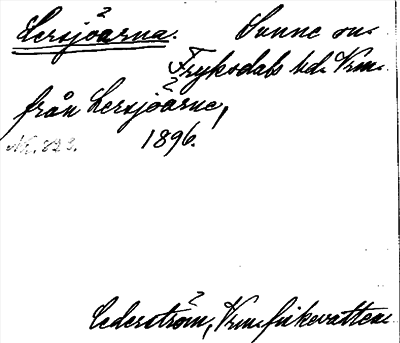 Lersjöarna. Sunne sn.
Fryksdals hd. Vrm.
från Lersjöarne,
1896.
Cederström, Vrm. fiskevatten